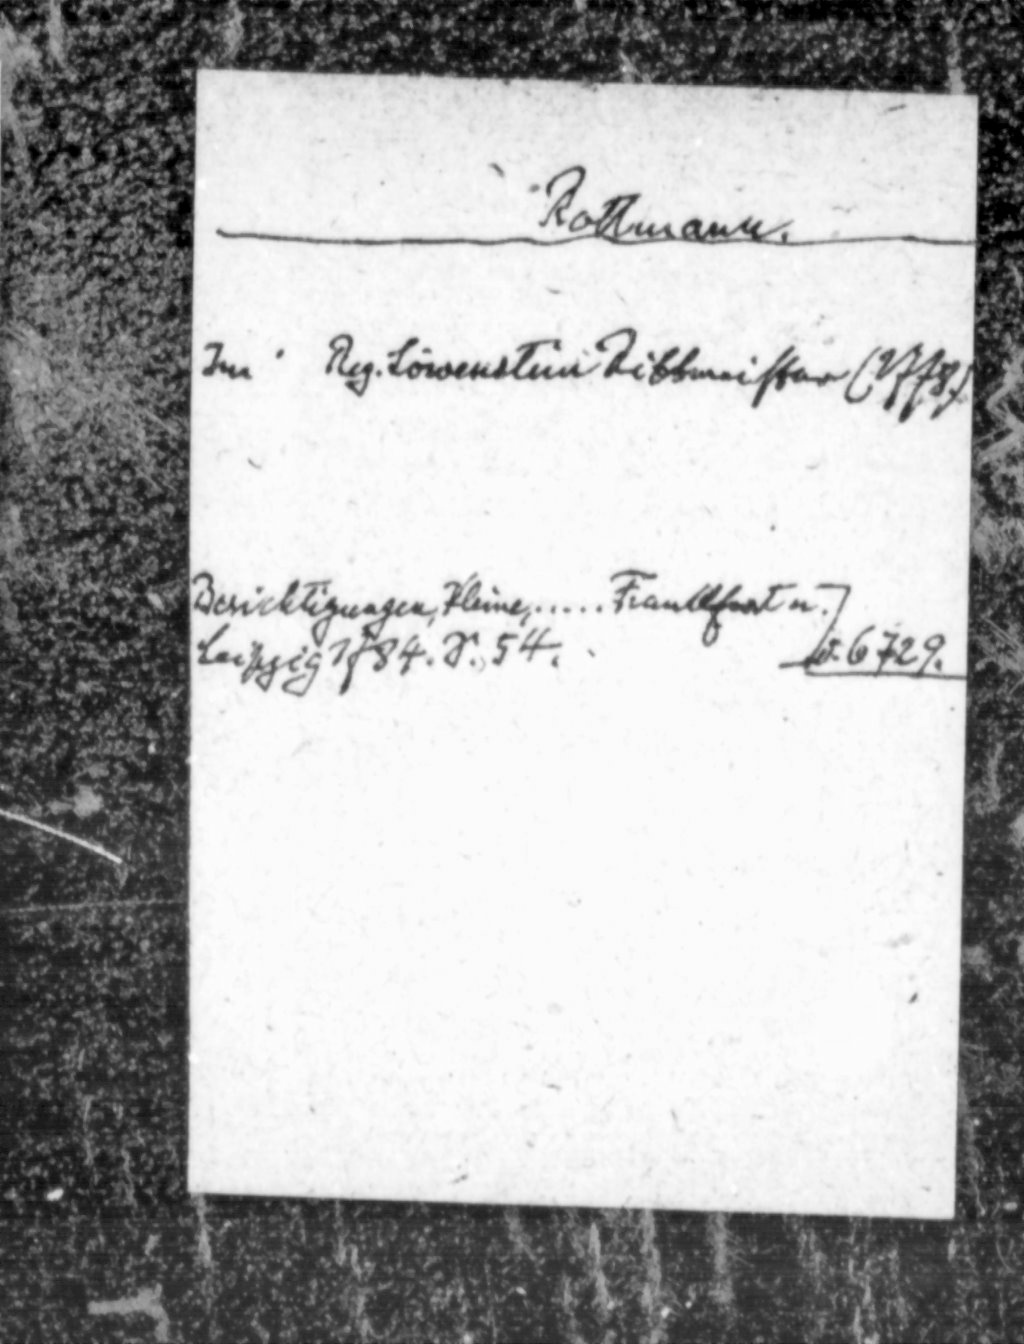 Rottmann.
Im Reg. Löwenstein Rittmeister (1778)
Berichtigungen, kleine, ..... Frankfurt u.
Leipzig 1784. S. 54. 6729.